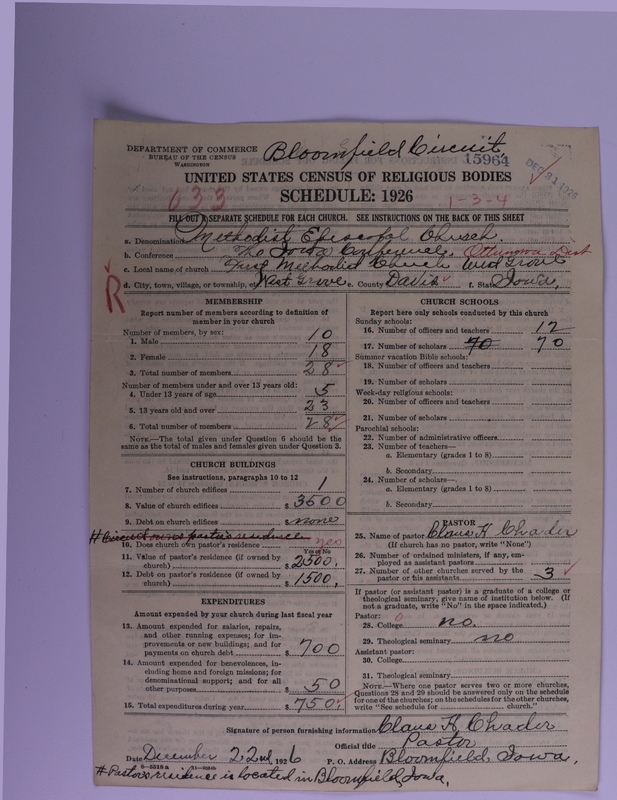 DEPARTMENT OF COMMERCE
BUREAU OF THE CENSUS
WASHINGTON
Bloomfield Circuit
15964
DEC 31 1926
UNITED STATES CENSUS OF RELIGIOUS BODIES
SCHEDULE: 1926
033
1-3-4
FILL OUT A SEPARATE SCHEDULE FOR EACH CHURCH. SEE INSTRUCTIONS ON THE BACK OF THIS SHEET
a. Denomination Methodist Episcopal Church
b. Conference The Iowa Conference, Ottumwa Dist
c. Local name of church First Methodist Church West Grove
d. City, town, village, or township, of West Grove e. County Davis f. State Iowa,
R
MEMBERSHIP
Report number of members according to definition of
member in your church
Number of members, by sex:
1. Male 10
2. Female 18
3. Total number of members 28
Number of members under and over 13 years old:
4. Under 13 years of age 5
5. 13 years old and over 23
6. Total number of members 28
NOTE.—The total given under Question 6 should be the
same as the total of males and females given under Question 3.
CHURCH BUILDINGS
See instructions, paragraphs 10 to 12
7. Number of church edifices 1
8. Value of church edifices $ 3500
9. Debt on church edifices $ none
# Circuit owns pastor's residence
10. Does church own pastor's residence yes
Yes or No
11. Value of pastor's residence (if owned by
church) $ 2500.
12. Debt on pastor's residence (if owned by
church) $ 1500.
EXPENDITURES
Amount expended by your church during last fiscal year
13. Amount expended for salaries, repairs,
and other running expenses; for im-
provements or new buildings; and for
payments on church debt $ 700
14. Amount expended for benevolences, in-
cluding home and foreign missions; for
denominational support; and for all
other purposes $ 50
15. Total expenditures during year $ 750.
CHURCH SCHOOLS
Report here only schools conducted by this church
Sunday schools:
16. Number of officers and teachers 12
17. Number of scholars 70 70
Summer vacation Bible schools:
18. Number of officers and teachers
19. Number of scholars
Week-day religious schools:
20. Number of officers and teachers
21. Number of scholars
Parochial schools:
22. Number of administrative officers
23. Number of teachers—
a. Elementary (grades 1 to 8)
b. Secondary
24. Number of scholars—
a. Elementary (grades 1 to 8)
b. Secondary
PASTOR
25. Name of pastor Claus K Chader
(If church has no pastor, write "None")
26. Number of ordained ministers, if any, em-
ployed as assistant pastors
27. Number of other churches served by the
pastor or his assistants 3
If pastor (or assistant pastor) is a graduate of a college or
theological seminary, give name of institution below. (If
not a graduate, write "No" in the space indicated.)
Pastor:
28. College no.
29. Theological seminary no
Assistant pastor:
30. College
31. Theological seminary
NOTE.—Where one pastor serves two or more churches,
Questions 28 and 29 should be answered only on the schedule
for one of the churches; on the schedules for the other churches,
write "See schedule for church."
Signature of person furnishing information Claus K Chader
Official title Pastor
Date December 22nd, 1926 P. O. Address Bloomfield, Iowa,
# Pastors residence is located in Bloomfield, Iowa,